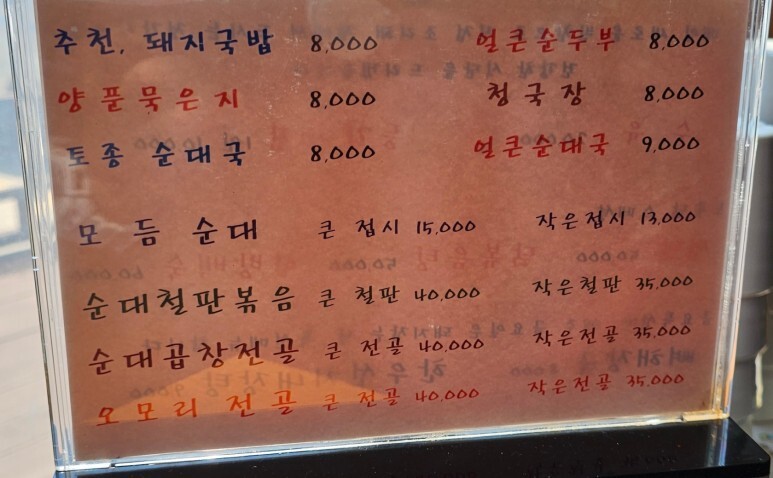 추천. 돼지국밥 8,000 얼큰순두부 8,000
양푼묵은지 8,000 청국장 8,000
토종 순대국 8,000 얼큰순대국 9,000
모듬 순대 큰 접시 15,000 작은접시 13,000
순대철판볶음 큰 철판 40,000 작은철판 35,000
순대곱창전골 큰 전골 40,000 작은전골 35,000
오모리 전골 큰 전골 40,000 작은전골 35,000